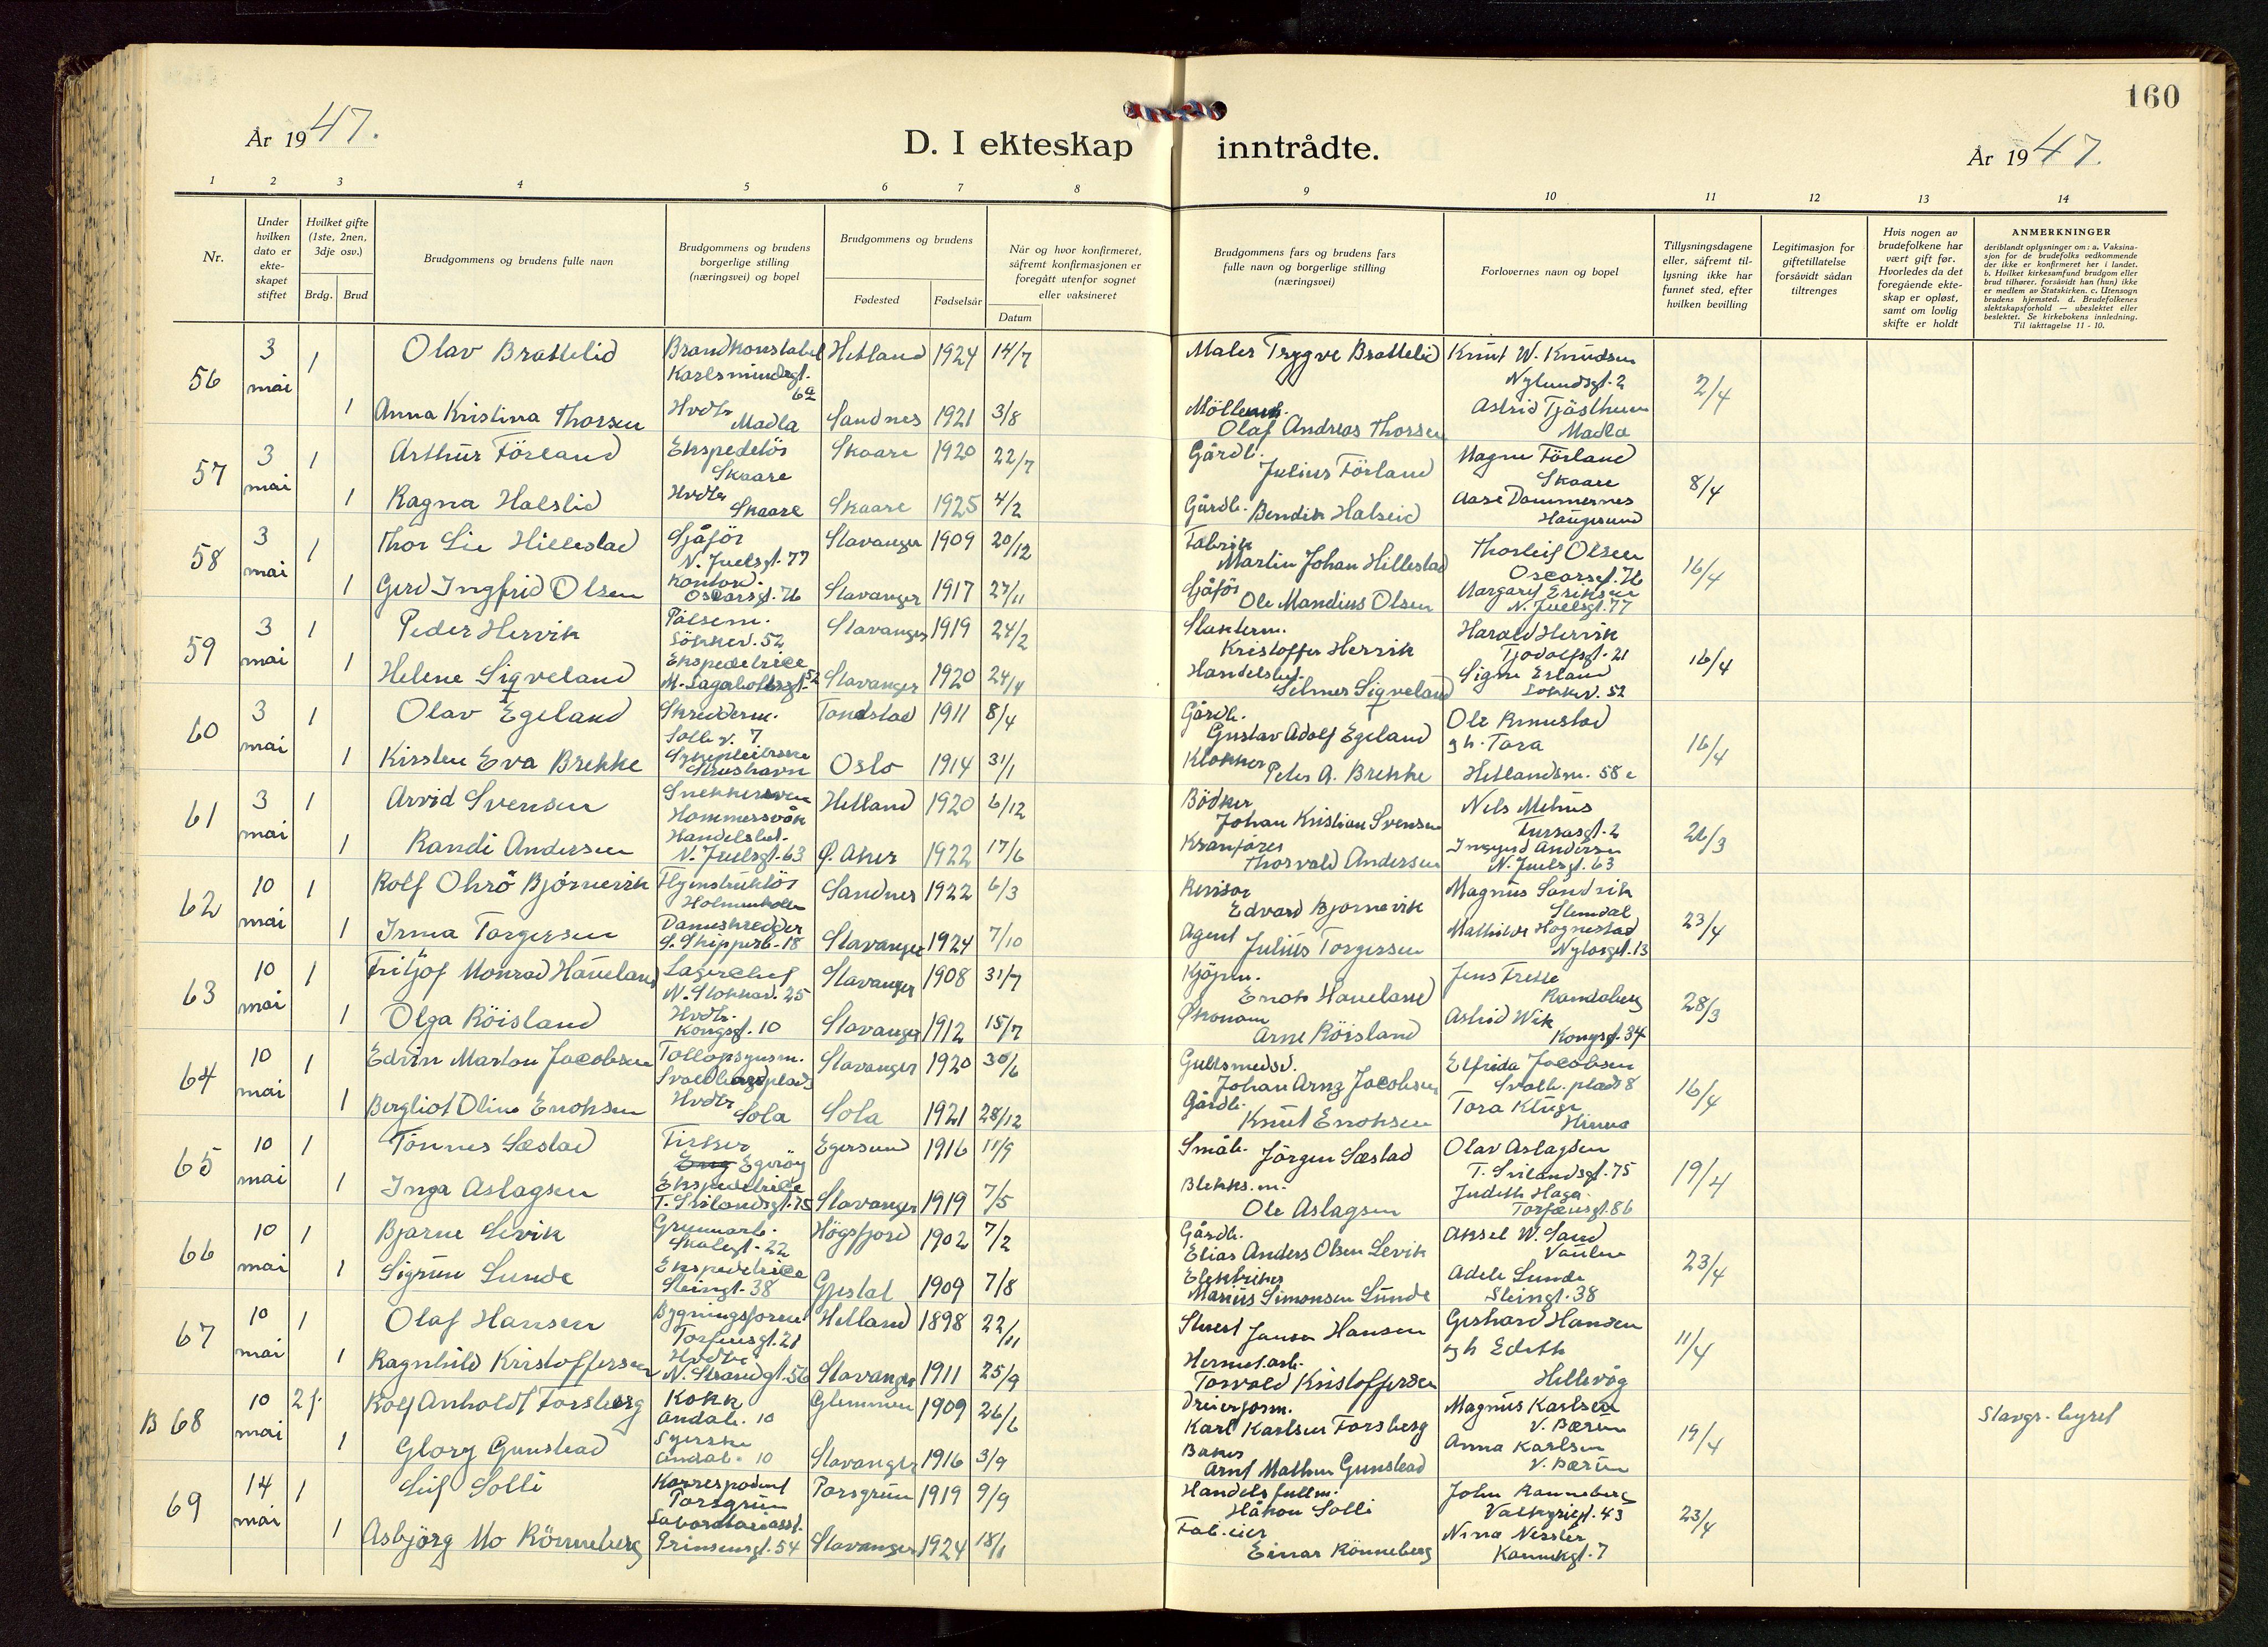 160
År 1947.
D. I ekteskap inntrådte.
År 1947.
1 2 3 4 5 6 7 8 9 10 11 12 13 14
Nr.
Under hvilken dato er ekteskapet stiftet
Hvilket gifte (1ste, 2nen, 3dje osv.)
Brdg. Brud
Brudgommens og brudens fulle navn
Brudgommens og brudens borgerlige stilling (næringsvei) og bopel
Brudgommens og brudens
Fødested Fødselsår
Når og hvor konfirmeret, såfremt konfirmasjonen er foregått utenfor sognet eller vaksineret
Datum
Brudgommens fars og brudens fars fulle navn og borgerlige stilling (næringsvei)
Forlovernes navn og bopel
Tillysningsdagene eller, såfremt tillysning ikke har funnet sted, efter hvilken bevilling
Legitimasjon for giftetillatelse forsåvidt sådan tiltrenges
Hvis nogen av brudefolkene har vært gift før. Hvorledes da det foregående ekteskap er opløst, samt om lovlig skifte er holdt
ANMERKNINGER
deriblandt oplysninger om: a. Vaksinasjon for de brudefolks vedkommende der ikke er konfirmeret her i landet. b. Hvilket kirkesamfund brudgom eller brud tilhører, forsåvidt han (hun) ikke er medlem av Statskirken. c. Utensogn brudens hjemsted. d. Brudefolkenes slektskapsforhold — ubeslektet eller beslektet. Se kirkebokens innledning. Til iakttagelse 11 - 10.
56 3 mai 1 Olav Brattelid Brandkonstabel Karlsmindegt. 6a Hetland 1924 14/7 Maler Trygve Brattelid Knut W. Knudsen Nylundsgt. 2 2/4
1 Anna Kristina Thorsen Hvdtr Madla Sandnes 1921 3/8 Olaf Andreas Thorsen Astrid Madla
57 3 mai 1 Arthur Förland Ekspeditör Skaare Skaare 1920 22/7 Gårdb. Julius Förland Magne Förland Skaare 8/4
1 Ragna Halseid Hvdtr Skaare Skaare 1925 4/2 Gårdb. Bendik Halseid Aase Dammernes Haugesund
58 3 mai 1 Thor Lie Hillestad Sjåför N. Juelsgt. 77 Stavanger 1909 20/12 Martin Johan Hillestad Thorleif Olsen Oscarsgt. 76 16/4
1 Gerd Ingfrid Olsen Kontord. Oscarsgt. 76 Stavanger 1917 27/11 Sjåför Ole Mandius Olsen Margaret Eriksen N. Juelsgt. 77
59 3 mai 1 Peder Hervik Pölsem. 52 Stavanger 1919 24/2 Kristoffer Hervik Harald Hervik Tjodolfsgt. 21 16/4
1 Helene Sigveland Ekspeditrice 52 Stavanger 1920 24/4 Handelsbet. Selmer Sigveland Signe Erland 52
60 3 mai 1 Olav Egeland Skredderm. Solli v. 7 Tonstad 1911 8/4 Gårdb. Gustav Adolf Egeland Ole 16/4
1 Kirsten Eva Brekke Oslo 1914 31/1 Klokker Peter A. Brekke gh. Tora Hetlandsm. 58 c
61 3 mai 1 Arvid Svensen Snekkersven Hommersvåk Hetland 1920 6/12 Bödker Johan Kristian Svensen Nils Mehus Tussasgt. 2 26/3
1 Randi Andersen Handelsbet. N. Juelsgt. 63 Ø. Aker 1922 17/6 Kranförer Thorvald Andersen Ingrid Andersen N. Juelsgt. 63
62 10 mai 1 Rolf Ohrö Bjørnevik Flyinstruktör Holmenkollen Sandnes 1922 6/3 Revisor Edvard Bjørnevik Magnus Sandvik 23/4
1 Irma Torgersen Dameskredder S. Skipperb. 18 Stavanger 1924 7/10 Agent Julius Torgersen Mathilde Hognestad Nylosgt. 13
63 10 mai 1 Fritjof Monrad Haueland Lagerchef N. Stokkav. 25 Stavanger 1908 31/7 Kjöpm. Enok Haueland Jens Frette Randaberg 28/3
1 Olga Röisland Hvdtr. Kongsgt. 10 Stavanger 1912 15/7 Økonom Arne Röisland Astrid Wik Kongsgt. 34
64 10 mai 1 Edvin Marton Jacobsen Tollopsynsm. Svoldbergsplads Stavanger 1920 30/6 Gullsmedsv. Johan Arnz Jacobsen Elfrida Jacobsen Svolb. plads 8 16/4
1 Bergliot Oline Enoksen Hvdtr Sola Sola 1921 28/12 Gårdb. Knut Enoksen Tora Kluge Hinna
65 10 mai 1 Tönnes Sæstad Fisker Egeröy Egersund 1916 11/9 Småb. Jörgen Sæstad Olav Aslagsen T. Svilandsgt. 75 19/4
1 Inga Aslagsen Ekspeditrice T. Svilandsgt. 75 Stavanger 1919 7/5 Blekks.m. Ole Aslagsen Judith Haga Torfæusgt. 86
66 10 mai 1 Bjarne Levik Grunnarb. Skolegt. 22 Högsfjord 1902 7/2 Gårdb. Elias Anders Olsen Levik Aksel W. Sand Vaulen 23/4
1 Sigrun Lunde Ekspeditrice Steingt. 38 Gjestal 1909 7/8 Elektriker Marius Simonsen Lunde Adele Lunde Steingt. 38
67 10 mai 1 Olaf Hansen Bygningsformand Torfæusgt. 21 Hetland 1898 22/11 Stuert Jansen Hansen Gerhard Hansen 11/4
1 Ragnhild Kristoffersen Hvdtr. N. Strandgt. 56 Stavanger 1911 25/9 Hermet.arb. Torvald Kristoffersen gh Edith Hillevåg
B 68 10 mai 2 f. Rolf Anholdt Forsberg Kokk Andab. 10 Glemmen 1909 26/6 Karl Karlsen Forsberg Magnus Karlsen V. Bærum 19/4 Stavgr. byret
1 Glory Gunstead Syerske Andab. 10 Stavanger 1916 3/9 Baker Arnt Mathun Gunstead Anna Karlsen V. Bærum
69 14 mai 1 Leif Solli Korrespodent Porsgrun Porsgrun 1919 9/9 Handelsfullm. Håkon Solli John Rønneberg Valkyriegt. 43 23/4
1 Asbjörg Mo Rönneberg Laboratorieasst. Prinsensgt. 54 Stavanger 1924 18/1 Fab.eier Einar Rönneberg Nina Nessler Kannikgt. 7